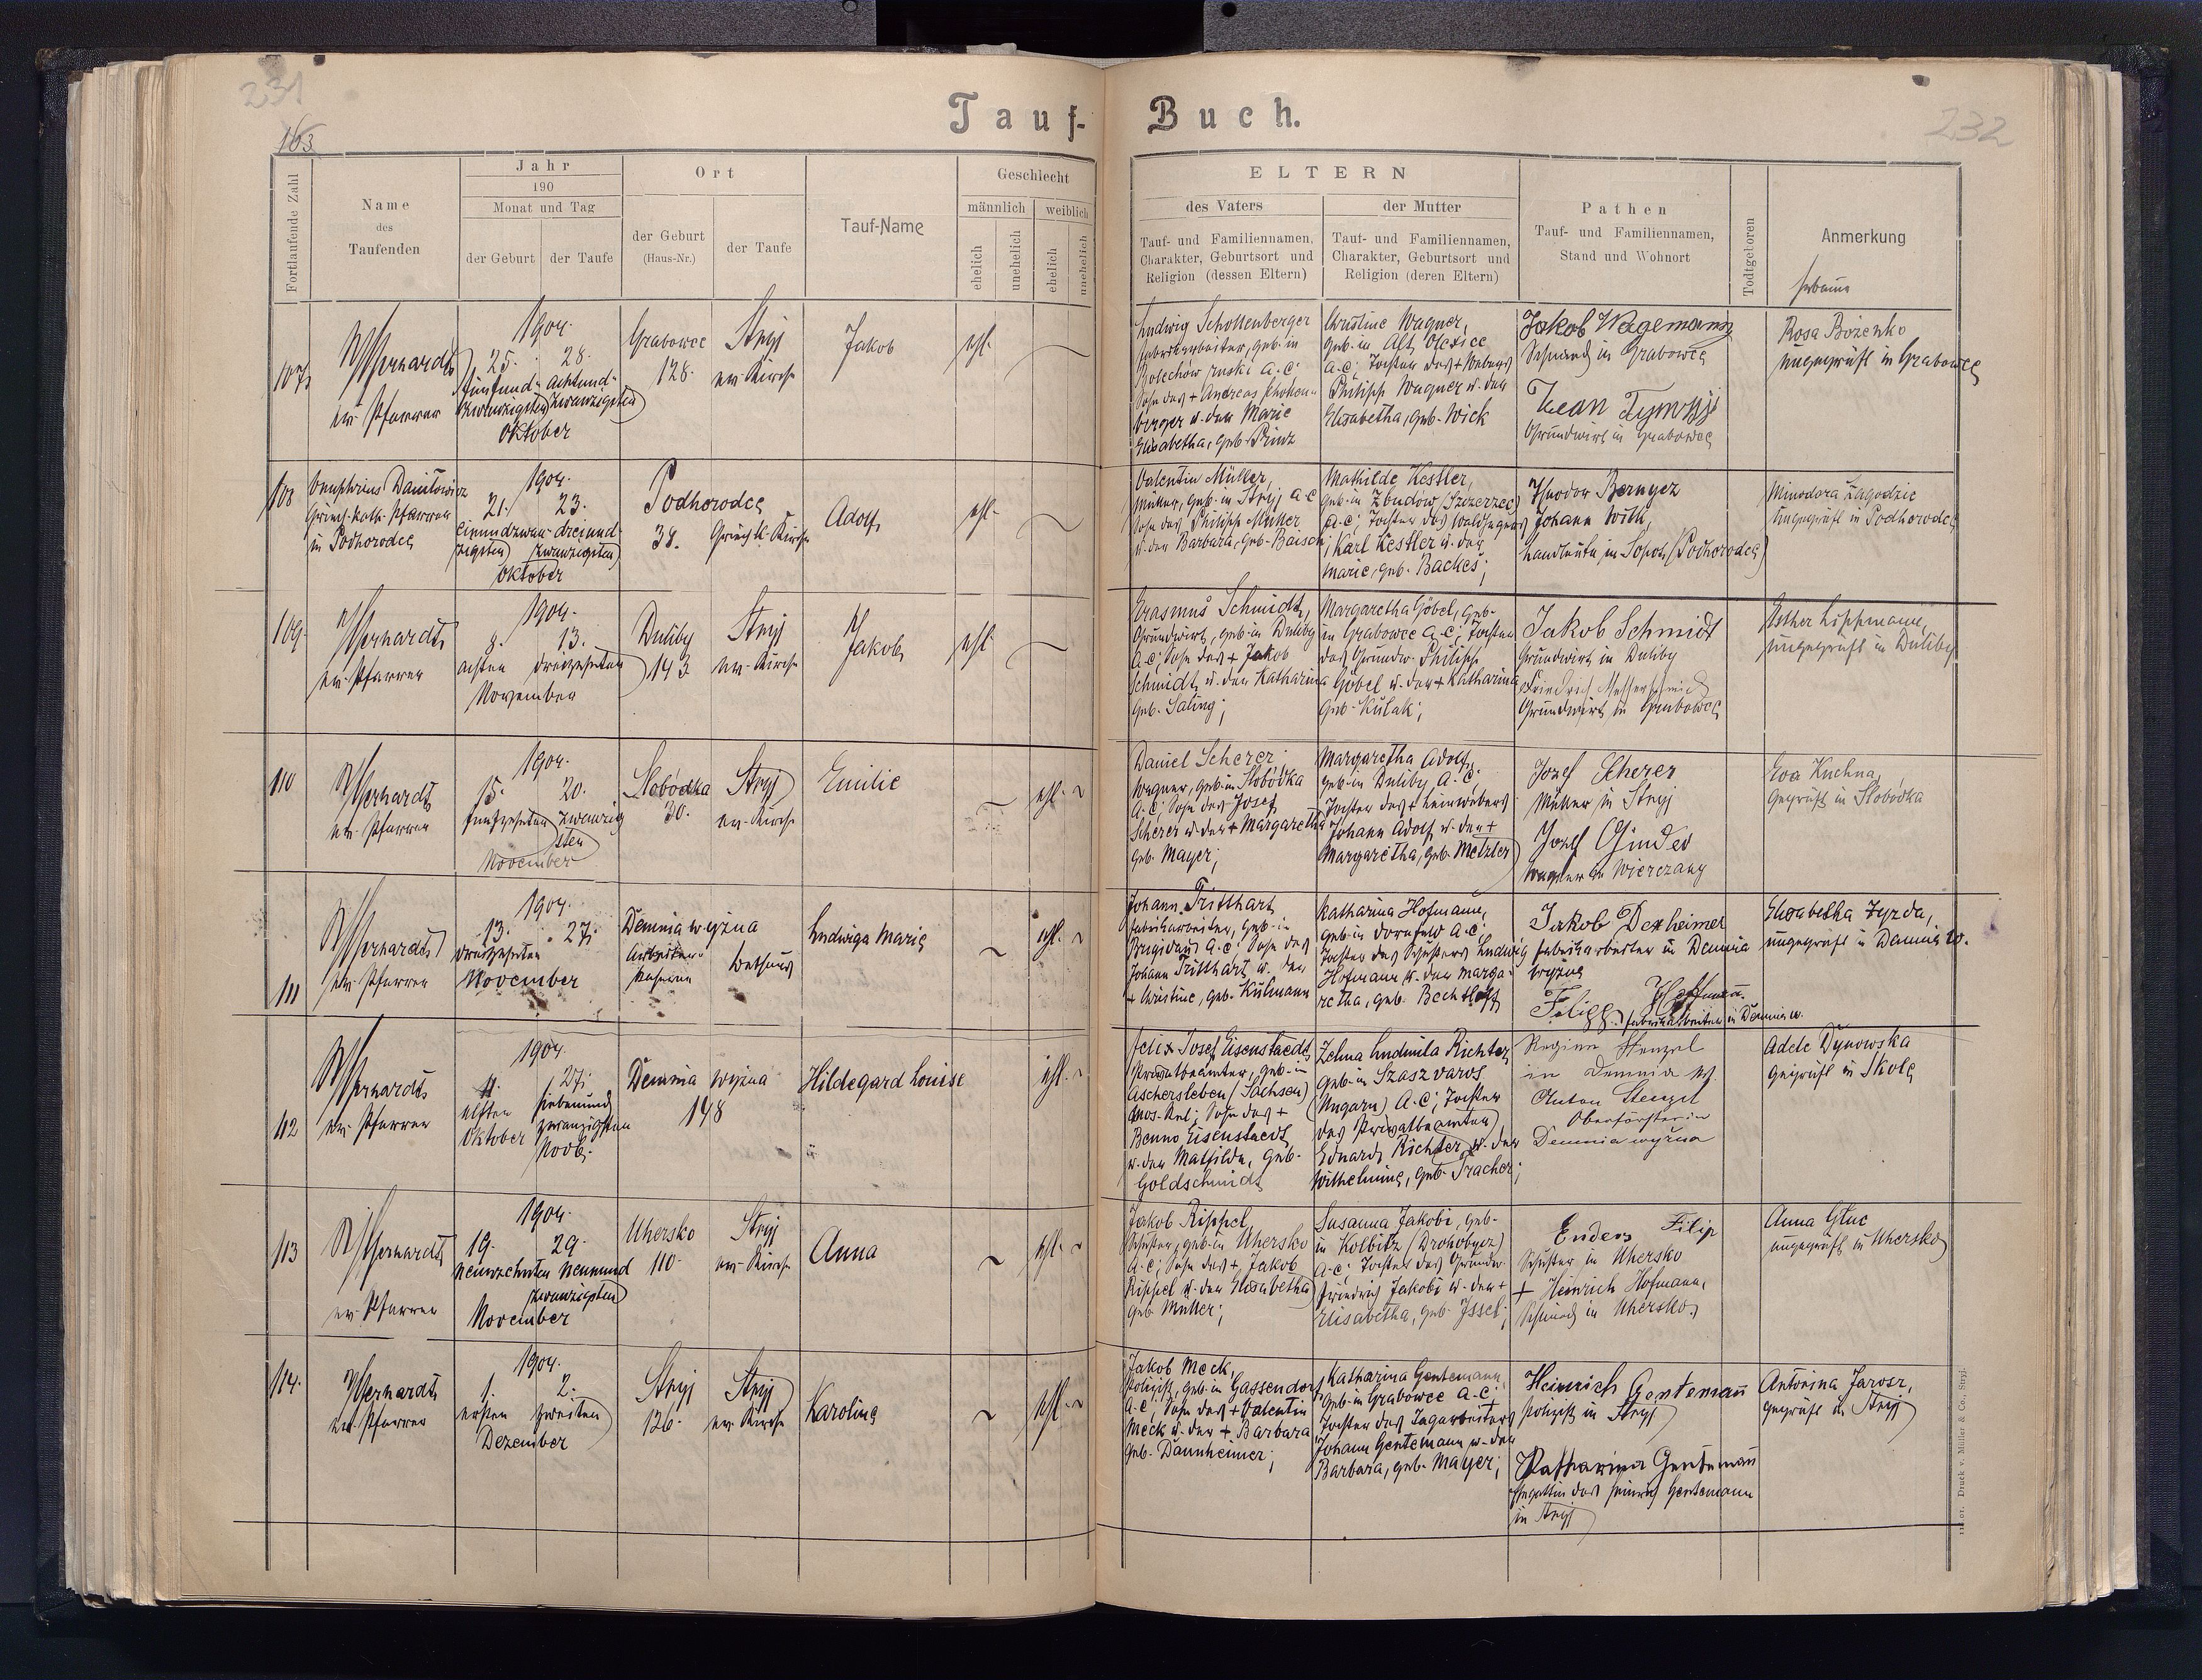 231
232
163
Tauf-Buch.
Fortlaufende Zahl
Name
des
Taufenden
Jahr
190
Monat und Tag
der Geburt
der Taufe
Ort
der Geburt
(Haus-Nr.)
der Taufe
Tauf-Name
Geschlecht
männlich
weiblich
ehelich
unehelich
ehelich
unehelich
ELTERN
des Vaters
Tauf- und Familiennamen,
Charakter, Geburtsort und
Religion (dessen Eltern)
der Mutter
Tauf- und Familiennamen,
Charakter, Geburtsort und
Religion (deren Eltern)
Pathen
Tauf- und Familiennamen,
Stand und Wohnort
Todtgeboren
Anmerkung
Hebamme
107
ev. Pfarrer
1904.
25. 28.
fünfund- achtund-
zwanzigsten zwanzigsten
Oktober
Grabowce
128.
Stryj
ev. Kirche
Jakob
ehl.
Ludwig Schollenberger
Fabrikarbeiter, geb. in
Bolechow ruski A.C.
Sohn des + Andreas
berger u. der Marie
Elisabetha, geb. Prinz
Christine Wagner,
geb. in Alt Olexice
A.C; Tochter des + Webers
Philipp Wagner u. der
Elisabetha, geb. Wick
Jakob Wagemann
Schmied in Grabowce
Grundwirt in Grabowce
Rosa Bożenko
ungeprüft in Grabowce
108
Onuphrius Daniłowicz
Griech.-kath. Pfarrer
in Podhorodce
1904.
21. 23.
einundzwan- dreiund-
zigsten zwanzigsten
Oktober
Podhorodce
38.
Griech. k. Kirche
Adolf
ehl.
Valentin Müller,
Müller, geb. in Stryj A.C
Sohn des Philipp Müller
u. der Barbara, geb. Baisch;
Mathilde Kessler,
geb. in Zbudow (Szczerzec)
A.C; Tochter des Waldhegers
Karl Kessler u. der
Marie, geb. Backes;
Theodor Bernyez
Johann With,
Landleute in Sopot (Podhorodce)
Minodora Zagodzic
ungeprüft in Podhorodce
109.
ev. Pfarrer
1904.
8. 13.
achten dreizehnten
November
Duliby
143
Stryj
ev. Kirche
Jakob
ehl.
Erasmus Schmidt,
Grundwirt, geb. in Duliby
A.C; Sohn des + Jakob
Schmidt u. der Katharina
geb. Saling;
Margaretha Göbel, geb.
in Grabowce A.C; Tochter
des Grundw. Philipp
Göbel u. der + Katharina
geb. Kulak;
Jakob Schmidt
Grundwirt in Duliby
Friedrich Messerschmidt
Grundwirt in Grabowce
Esther Lippmann,
ungeprüft in Duliby
110
ev. Pfarrer
1904.
15. 20.
fünfzehnten zwanzig
sten
November
Slobódka
30.
Stryj
ev. Kirche
Emilie
ehl.
Daniel Scherer
Wagner, geb. in Slobódka
A.C; Sohn des Josef
Scherer u. der + Margaretha
geb. Mayer;
Margaretha Adolf,
geb. in Duliby A.C.
Tochter des + Leinwebers
Johann Adolf u. der +
Margaretha, geb. Metzler
Jozef Scherer
Müller in Stryj
Josef
Wagner in Wierczany
Eva Kuchna
geprüft in Slobódka
111
ev. Pfarrer
1904.
13. 27.
dreizehnten
November
Demnia wyżna
Arbeiter-
kaserne
Bethaus
Ludwiga Marie
ehl.
Johann Tritthart
Fabriksarbeiter, geb. in
Brigidau A.C; Sohn des
Johann Tritthart u. der
+ Christine, geb. Külmann
Katharina Hofmann,
geb. in Dornfeld A.C;
Tochter des Schusters Ludwig
Hofmann u. der Marga-
retha, geb. Bechtloff
Jakob Dexheimer
Fabriksarbeiter in Demnia
wyżna
Filipp Hoffmann.
Fabriksarbeiter in Demnia w.
Elisabetha Zyrda,
ungeprüft in Demnia w.
112
ev. Pfarrer
1904.
11. 27.
elften siebenund
Oktober zwanzigsten
Novb.
Demnia wyżna
148
Hildegard Louise
ehl.
Felix Josef Eisenstaedt
Privatbeamter, geb. in
Aschersleben (Sachsen)
mos. Rel; Sohn des +
Benno Eisenstaedt
u. der Mathilde, geb.
Goldschmidt
Zelma Ludmila Richter
geb. in Szaszvaros
(Ungarn) A.C; Tochter
des Privatbeamten
Eduard Richter u. der
Wilhelmine, geb. Tracher;
Regine Stenzel
in Demnia w.
Anton Stenzel
Oberförster in
Demnia wyżna
Adele Dynowska
geprüft in Skole
113
ev. Pfarrer
1904.
19. 29.
neunzehnten neunund
zwanzigsten
November
Uhersko
110.
Stryj
ev. Kirche
Anna
ehl.
Jakob Rippel,
Schuster, geb. in Uhersko
A.C; Sohn des +, Jakob
Rippel u. der Elisabetha
geb. Müller;
Susanna Jakobi, geb.
in Kolbitz (Drohobycz)
A.C; Tochter des Grundw.
Friedrich Jakobi u. der +
Elisabetha, geb. Issel;
Enders Filip
Schuster in Uhersko
+ Heinrich Hofmann,
Schmied in Uhersko
Anna Gluc
ungeprüft in Uhersko
114.
ev. Pfarrer
1904.
1. 2.
ersten zweiten
Dezember
Stryj
126.
Stryj
ev. Kirche
Karoline
ehl.
Jakob Meck,
Polizist, geb. in Gassendorf
A.C; Sohn des + Valentin
Meck u. der + Barbara
geb. Dannheimer;
Katharina Gentemann,
geb. in Grabowce A.C;
Tochter des Tagarbeiters
Johann Gentemann u. der
Barbara, geb. Mayer;
Heinrich Gentemann
Polizist in Stryj
Katharina Gentemann
Ehegattin des Heinrich Gentemann
in Stryj
Antonina Jarosz,
geprüft in Stryj
Druck v. Müller & Co. Stryj.